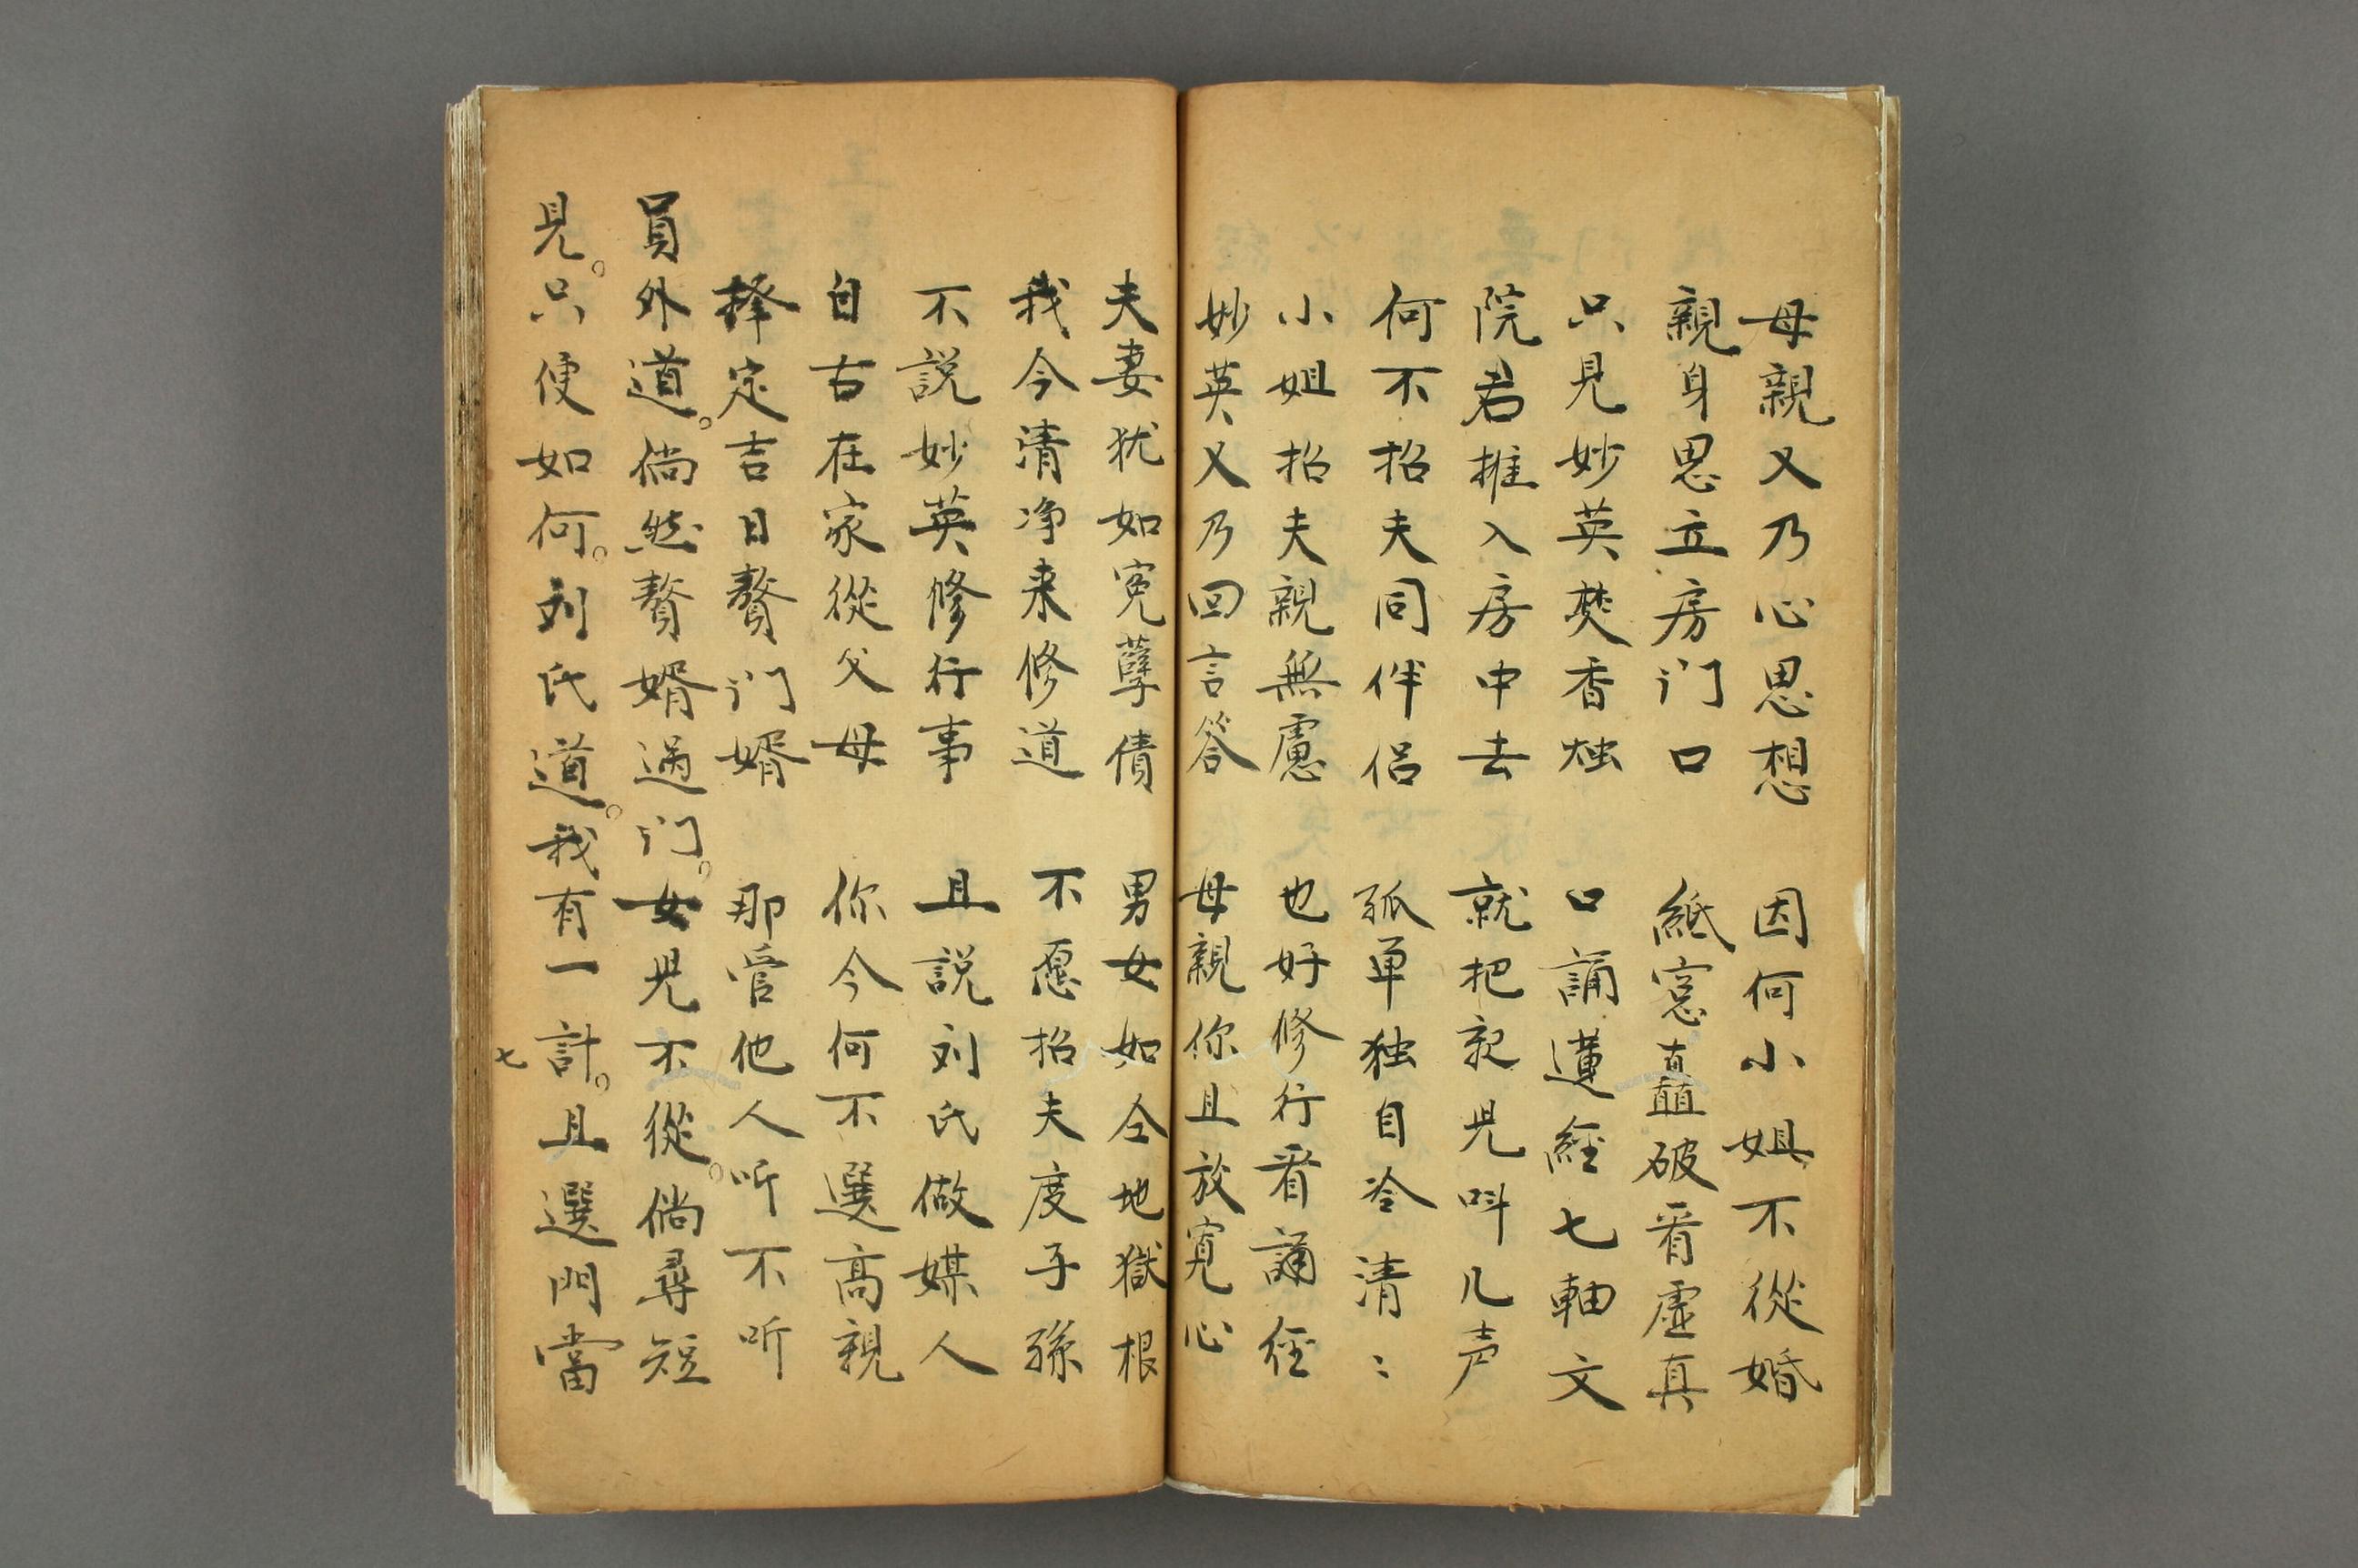 母親又乃心思想　因何小姐不從婚
親身思立房门口　紙窓矗破看虛真
只見妙英焚香烛　口誦蓮經七軸文
院君推入房中去　就把親児呌几声
何不招夫同伴侣　孤单独自冷清〻
小姐招夫親無慮　也好修行看誦経
妙英又乃回言答　母親你且放寛心
夫妻犹如寃孽债　男女如仝地獄根
我今清净来修道　不愿招夫度子孫
不説妙英修行事　且説刘氏做媒人
自古在家從父母　你今何不選高親
择定吉日贅门婿　那管他人听不听
員外道。倘然贅婿過门。女児不從。倘尋短
見。只便如何。刘氏道。我有一計。且選門當
七